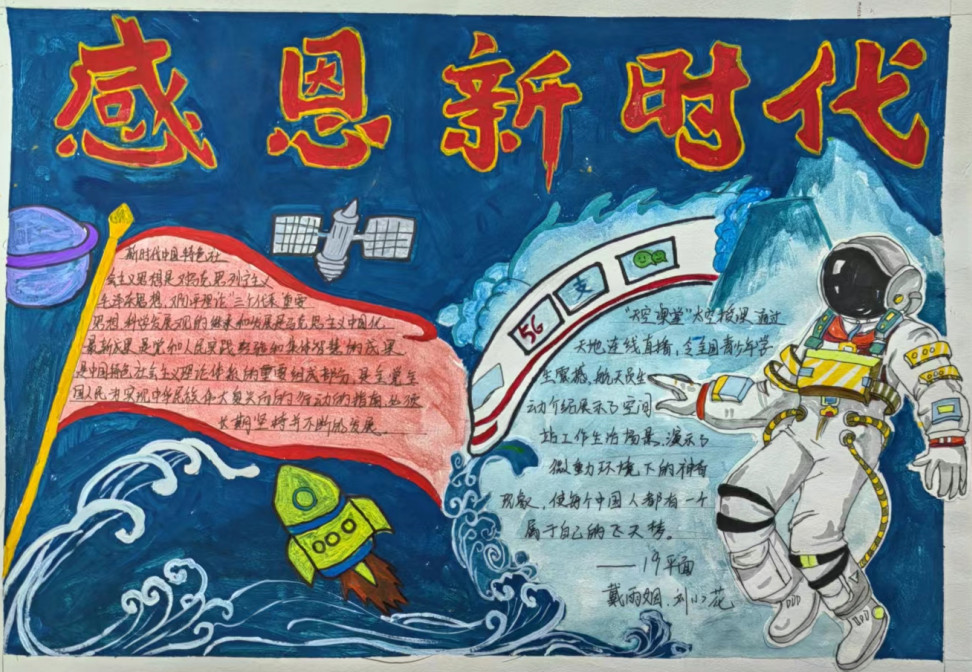 感恩新时代
新时代中国特色社
会主义思想是对马克思列宁主义
毛泽东思想、邓小平理论、三个代表重要
思想、科学发展观的继承和发展是马克思主义中国化
最新成果是党和人民实践经验和集体智慧的成果
是中国特色社会主义理论体系的重要组成部分，是全党全
国人民为实现中华民族伟大复兴而的行动的指南，必须
长期坚持并不断的发展
5G
支
"天空课堂"太空授课通过
天地连线直播，令全国青少年学
生震撼，航天员生
动介绍展示了空间
站工作生活场景，演示了
微重力环境下的神奇
现象，使每个中国人都有一个
属于自己的飞天梦。
——19平面
戴雨姻、刘小花